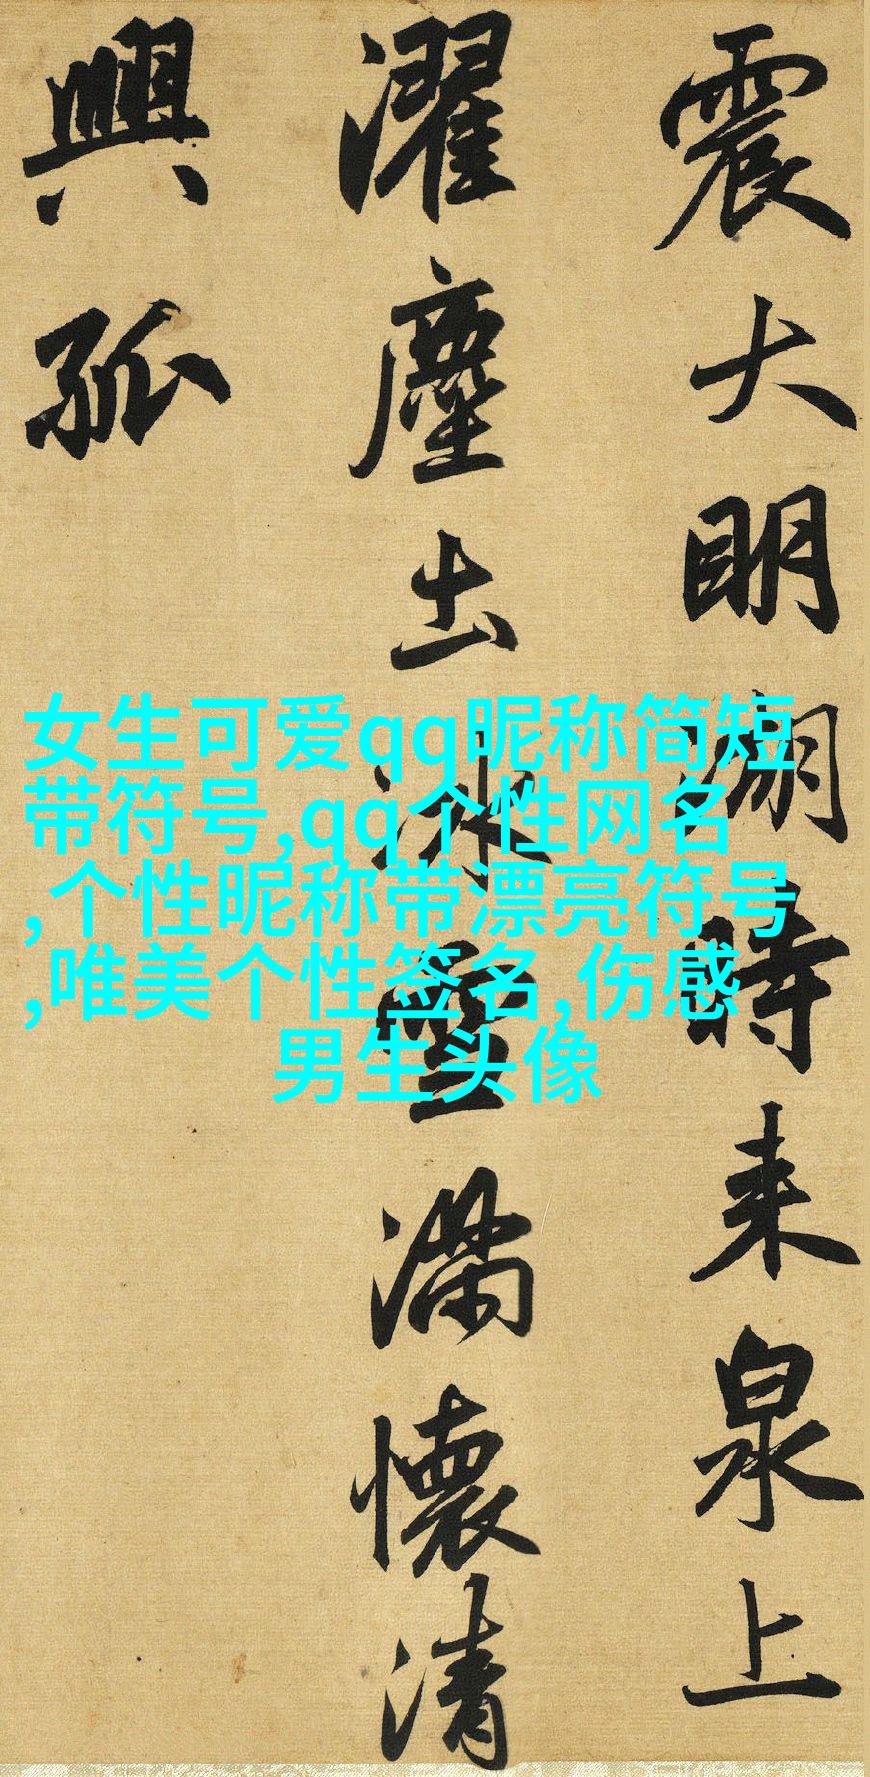 震大明湖時来泉上
濯塵土冰雪满懷清
興孤
女生可爱qq昵称简短
带符号,qq个性网名
,个性昵称带漂亮符号
,唯美个性签名,伤感
男生头像